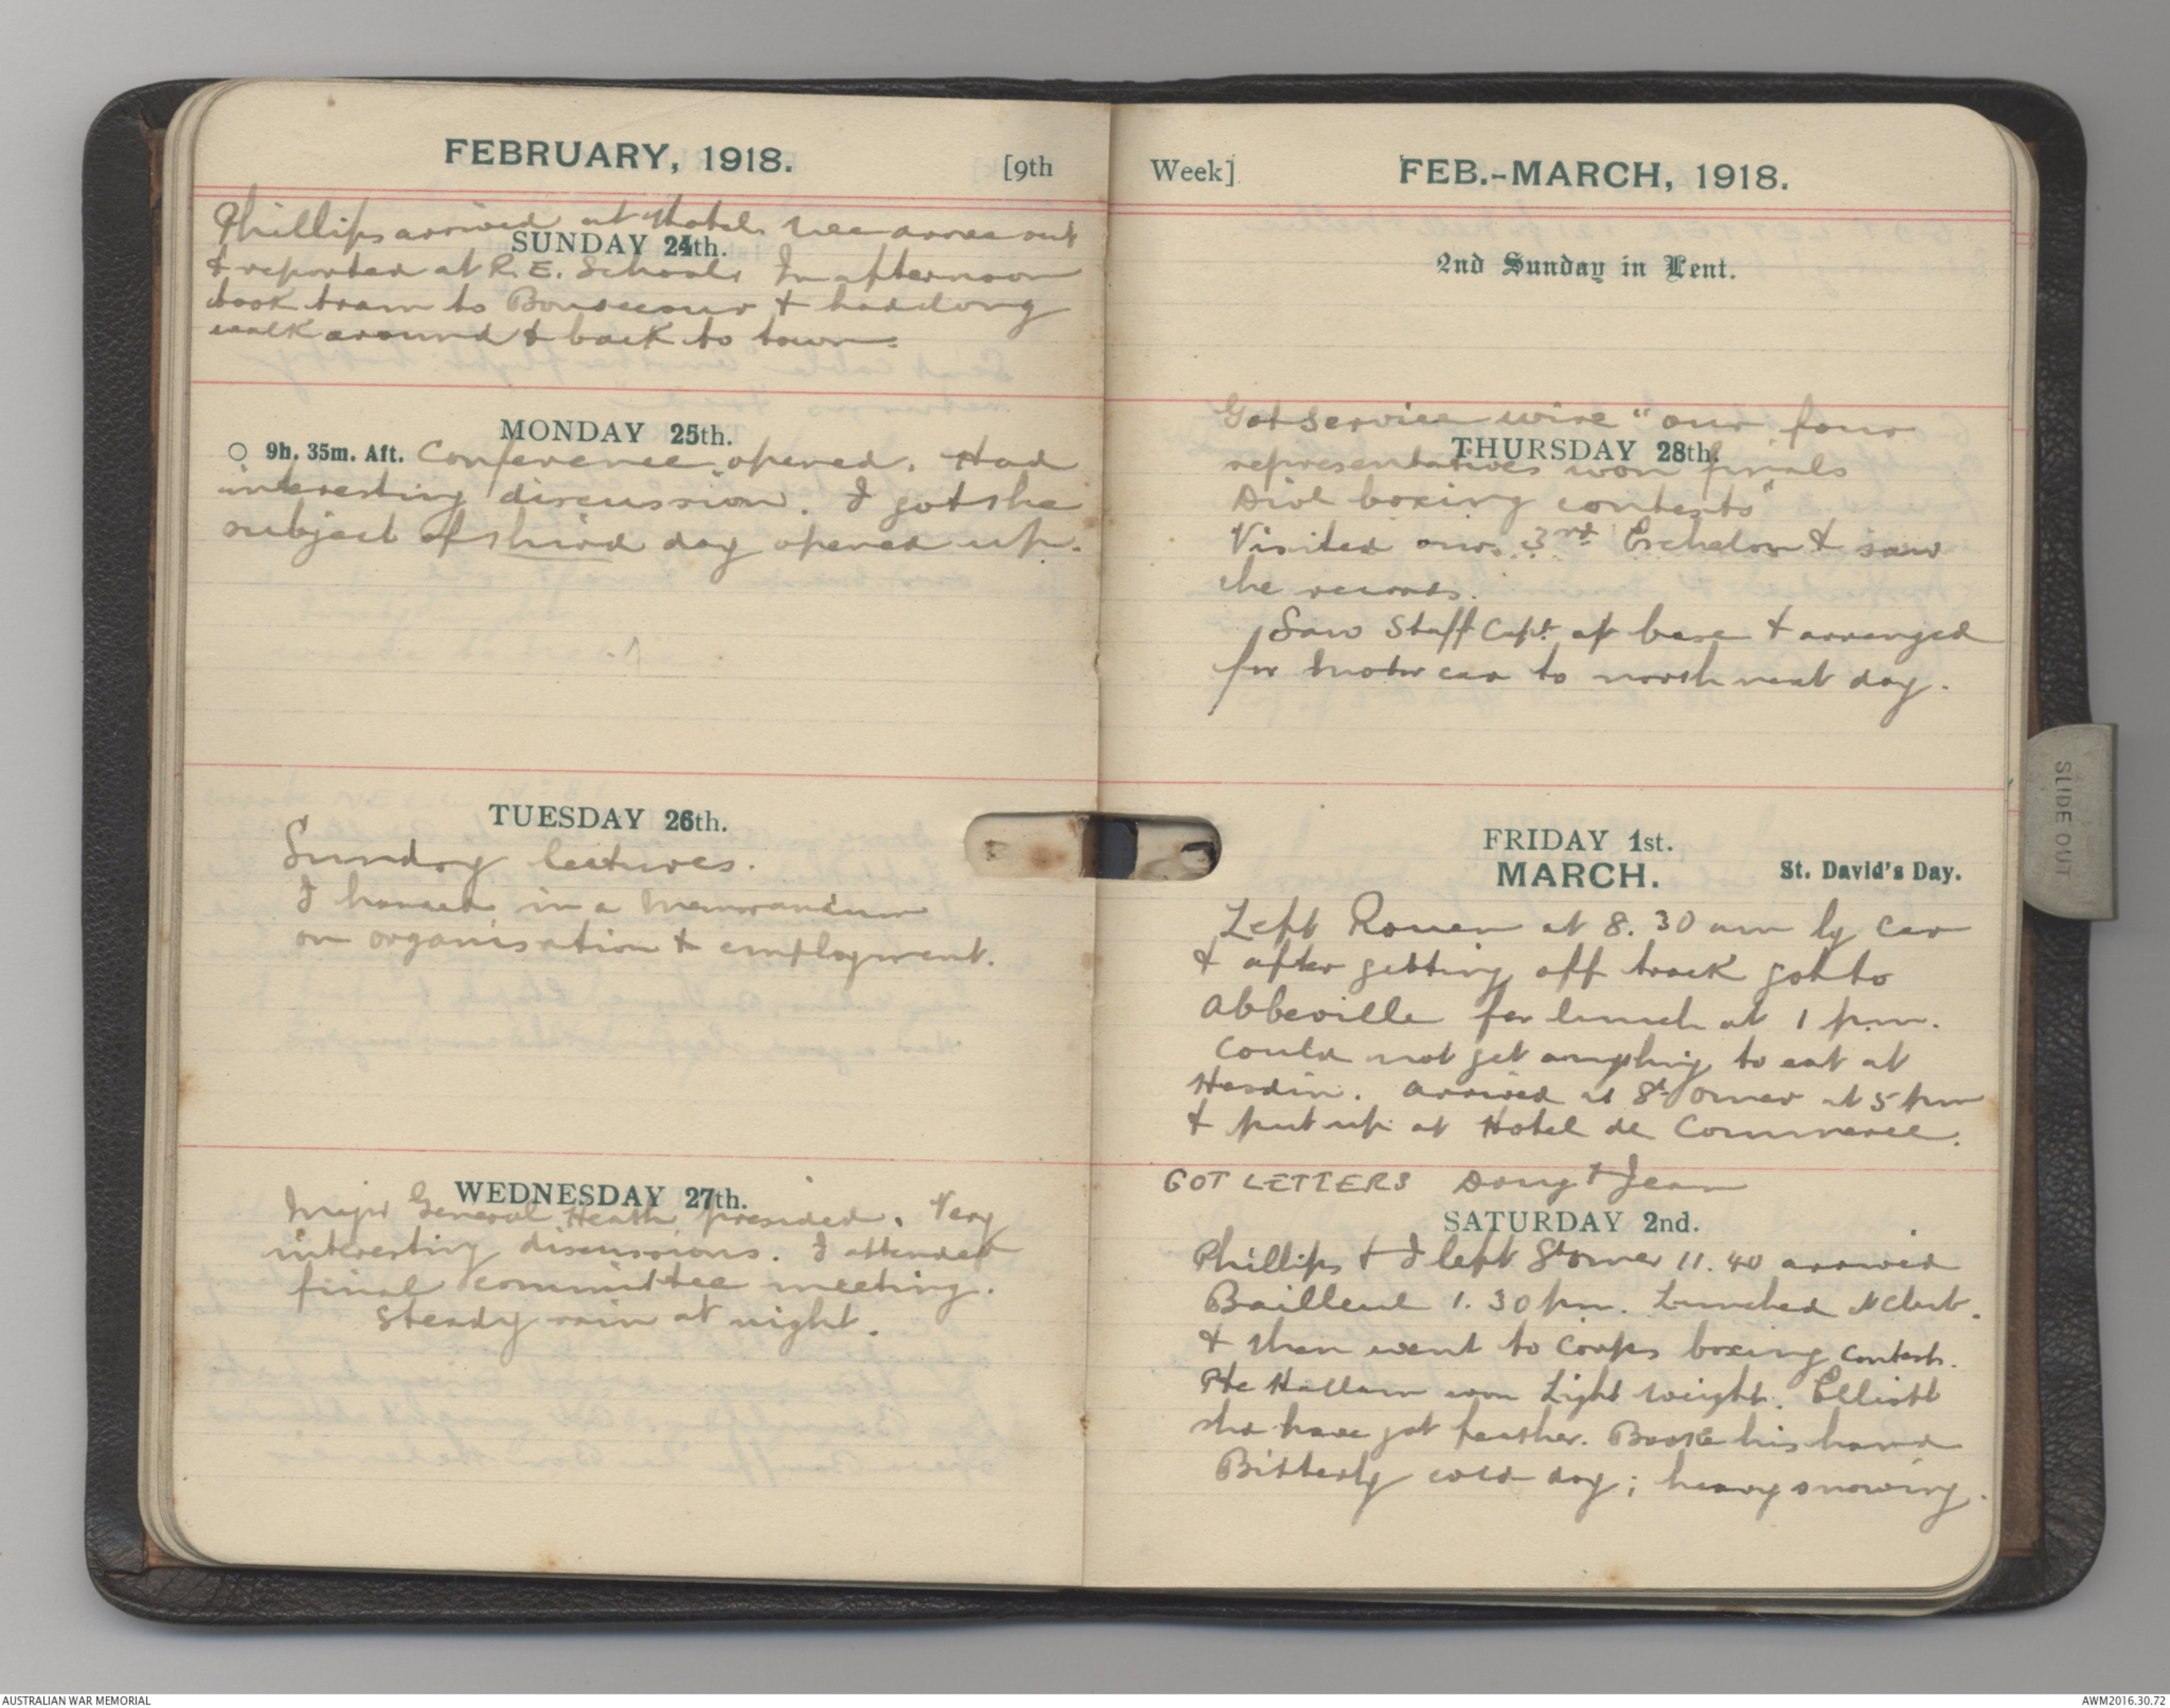 FEBRUARY, 1918. [9th
Phillips arrived at Hotel. We drove out
SUNDAY 24th.
& reported at R.E. Schools In afternoon
took tram to Bonsecour & had long
walk around & back to town.
MONDAY 25th.
9h. 35m. Aft. Conference opened. Had
interesting discussion. I got the
subject of third day opened up.
TUESDAY 26th.
Sundry lectures.
I handed in a memorandum
on organisation & employment.
WEDNESDAY 27th.
Major General Heath presided. Very
interesting discussions. I attended
final committee meeting.
Steady rain at night.
Week] FEB.-MARCH, 1918.
2nd Sunday in Lent.
Got service wire "our four
THURSDAY 28th.
representatives won finals
Divl boxing contests"
Visited our 3rd Echelon & saw
the records.
Saw Staff Capt. of base & arranged
for motor car to north next day.
FRIDAY 1st.
MARCH. St. David's Day.
Left Rouen at 8.30 am by car
& after getting off track got to
Abbeville for lunch at 1 p.m.
Could not get anything to eat at
Hesdin. Arrived at St Omer at 5 pm
& put up at Hotel de Commerce.
GOT LETTERS Doug & Jean
SATURDAY 2nd.
Phillips & I left St Omer 11.40 arrived
Bailleul 1.30 pm. Lunched at club.
& then went to Corps boxing contests.
Pte Hallam won Light weight. Elliott
shd have got feather. Broke his hand
Bitterly cold day; heavy snowing.
SLIDE OUT
AUSTRALIAN WAR MEMORIAL AWM2016.30.72